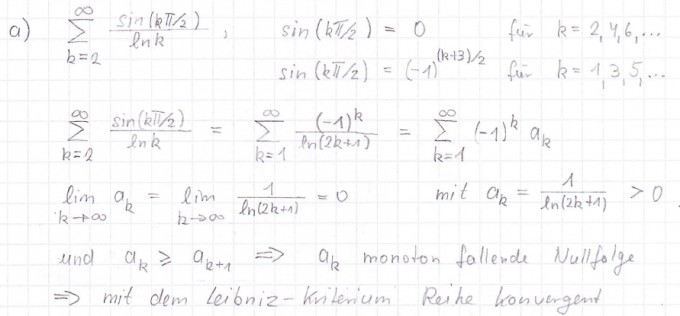 a) ∑_{k=2}^{∞} sin(kπ/2)/ln k , sin(kπ/2) = 0 für k = 2,4,6,...
sin(kπ/2) = (-1)^{(k+3)/2} für k = 1,3,5,...
∑_{k=2}^{∞} sin(kπ/2)/ln k = ∑_{k=1}^{∞} (-1)^k/ln(2k+1) = ∑_{k=1}^{∞} (-1)^k a_k
lim_{k→∞} a_k = lim_{k→∞} 1/ln(2k+1) = 0 mit a_k = 1/ln(2k+1) > 0 .
und a_k ≥ a_{k+1} ⇒ a_k monoton fallende Nullfolge
⇒ mit dem Leibniz-Kriterium Reihe konvergent